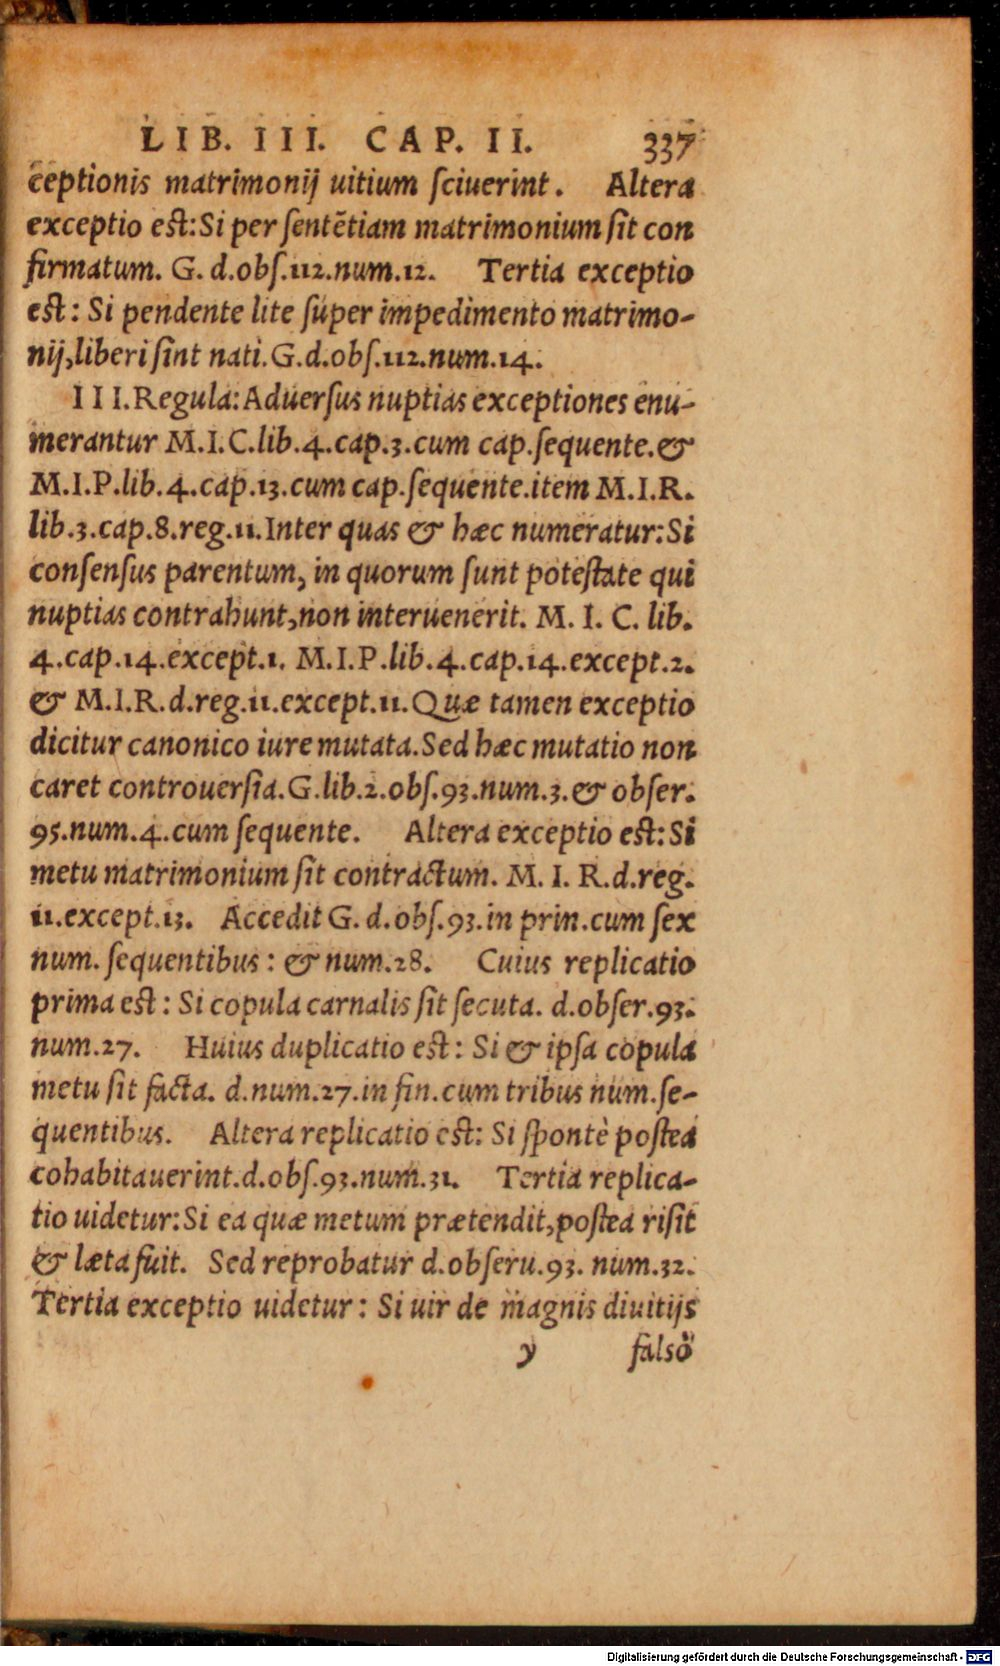 LIB. III. CAP. II. 337
ceptionis matrimonij uitium ſciuerint. Altera
exceptio eſt: Si per ſentẽtiam matrimonium ſit con
firmatum. G. d.obſ.112.num.12. Tertia exceptio
eſt: Si pendente lite ſuper impedimento matrimo-
nij, liberi ſint nati. G.d.obſ.112.num.14.
III. Regula: Aduerſus nuptias exceptiones enu-
merantur M.I.C.lib.4.cap.3.cum cap.ſequente. &
M.I.P.lib.4.cap.13.cum cap.ſequente.item M.I.R.
lib.3.cap.8.reg.11.Inter quas & hæc numeratur: Si
conſenſus parentum, in quorum ſunt poteſtate qui
nuptias contrahunt, non interuenerit. M. I. C. lib.
4.cap.14.except.1. M.I.P.lib.4.cap.14.except.2.
& M.I.R.d.reg.11.except.11.Quæ tamen exceptio
dicitur canonico iure mutata.Sed hæc mutatio non
caret controuerſia.G.lib.2.obſ.93.num.3.& obſer.
95.num.4.cum ſequente. Altera exceptio eſt: Si
metu matrimonium ſit contractum. M. I. R.d.reg.
11.except.13. Accedit G. d.obſ.93.in prin.cum ſex
num. ſequentibus: & num.28. Cuius replicatio
prima eſt: Si copula carnalis ſit ſecuta. d.obſer.93.
num.27. Huius duplicatio eſt: Si & ipſa copula
metu ſit facta. d.num.27.in fin.cum tribus num.ſe-
quentibus. Altera replicatio eſt: Si ſpontè poſtea
cohabitauerint.d.obſ.93.num.31. Tertia replica-
tio uidetur: Si ea quæ metum prætendit, poſtea riſit
& læta fuit. Sed reprobatur d.obſeru.93. num.32.
Tertia exceptio uidetur: Si uir de magnis diuitijs
y falsò
Digitalisierung gefördert durch die Deutsche Forschungsgemeinschaft - DFG